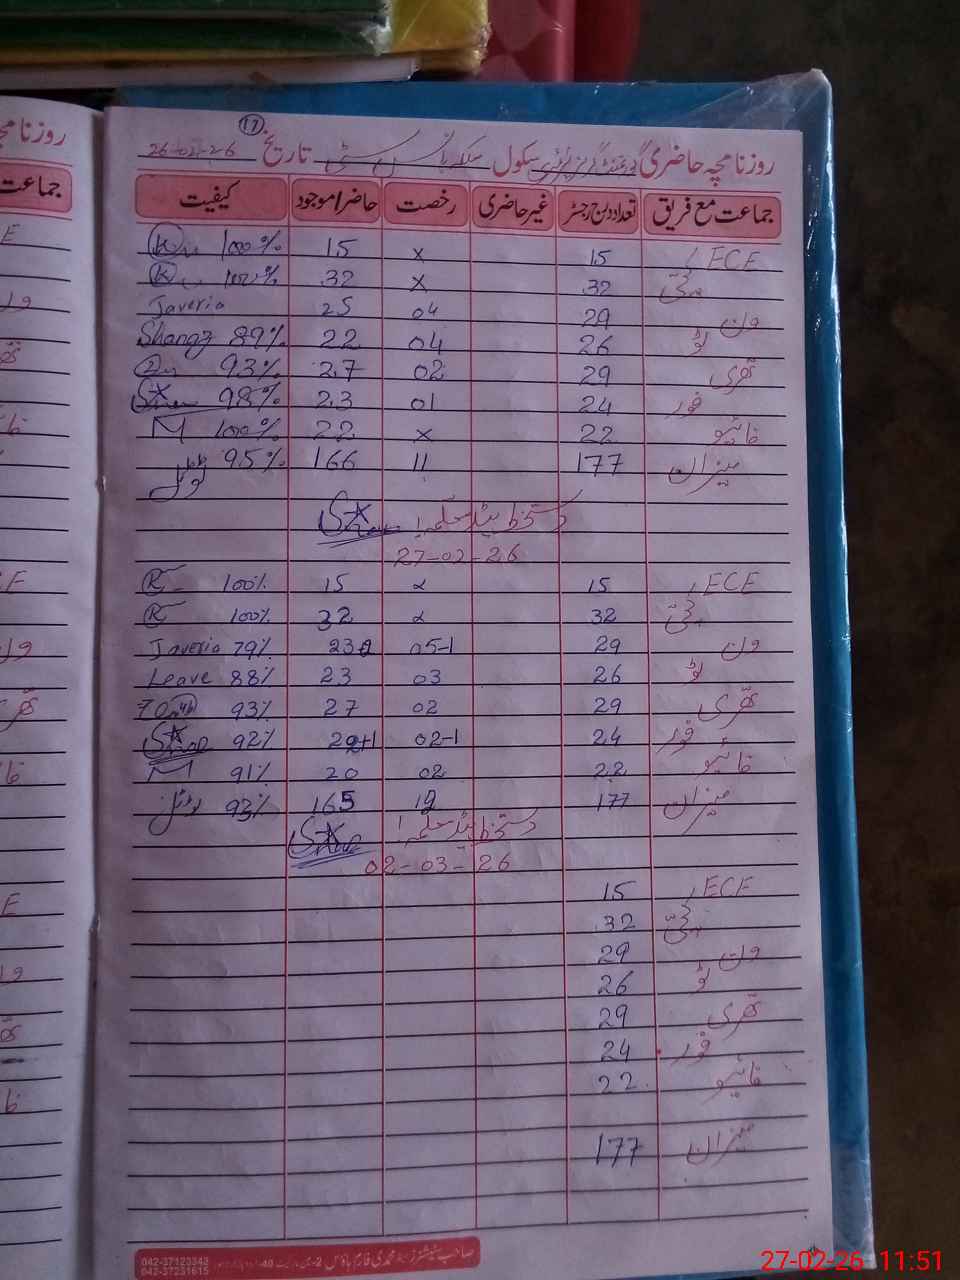 17
روزنامچہ حاضری گورنمنٹ گرلز سکول تاریخ 26-02-26
جماعت مع فریق تعداد درج رجسٹر غیر حاضری رخصت حاضر/موجود کیفیت
ECE 15 x 15 100%
کچی 32 x 32 100%
ون 29 04 25 Javeria
ٹو 26 04 22 89%
تھری 29 02 27 93%
فور 24 01 23 98%
فائیو 22 x 22 M 100%
میزان 177 11 166 95% ٹوٹل
دستخط ہیڈ معلمہ
27-02-26
ECE 15 x 15 100%
کچی 32 x 32 100%
ون 29 05-1 23 Javeria 79%
ٹو 26 03 23 Leave 88%
تھری 29 02 27 93%
فور 24 02-1 92%
فائیو 22 02 20 M 91%
میزان 177 12 165 93% ٹوٹل
دستخط ہیڈ معلمہ
02-03-26
ECE 15
کچی 32
ون 29
ٹو 26
تھری 29
فور 24
فائیو 22
میزان 177
042-37123342
042-37231615
27-02-26 11:51